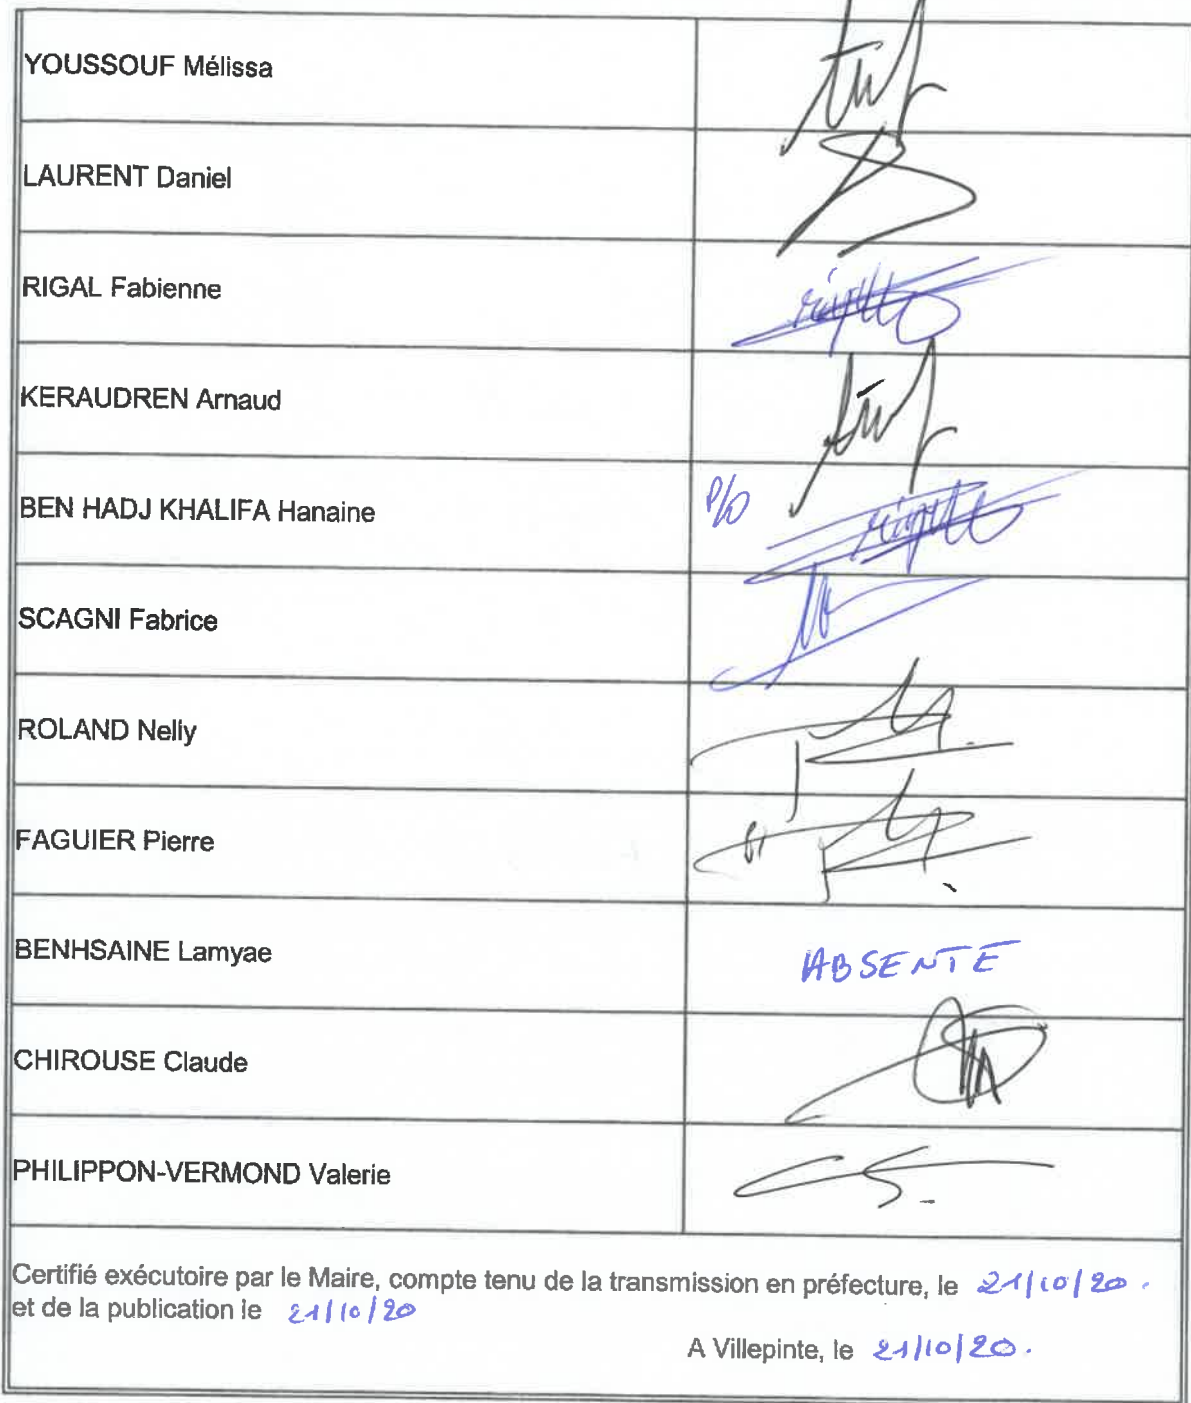 YOUSSOUF Mélissa
LAURENT Daniel
RIGAL Fabienne
KERAUDREN Arnaud
BEN HADJ KHALIFA Hanaine P/O
SCAGNI Fabrice
ROLAND Nelly
FAGUIER Pierre
BENHSAINE Lamyae ABSENTE
CHIROUSE Claude
PHILIPPON-VERMOND Valerie
Certifié exécutoire par le Maire, compte tenu de la transmission en préfecture, le 21/10/20.
et de la publication le 21/10/20
A Villepinte, le 21/10/20.